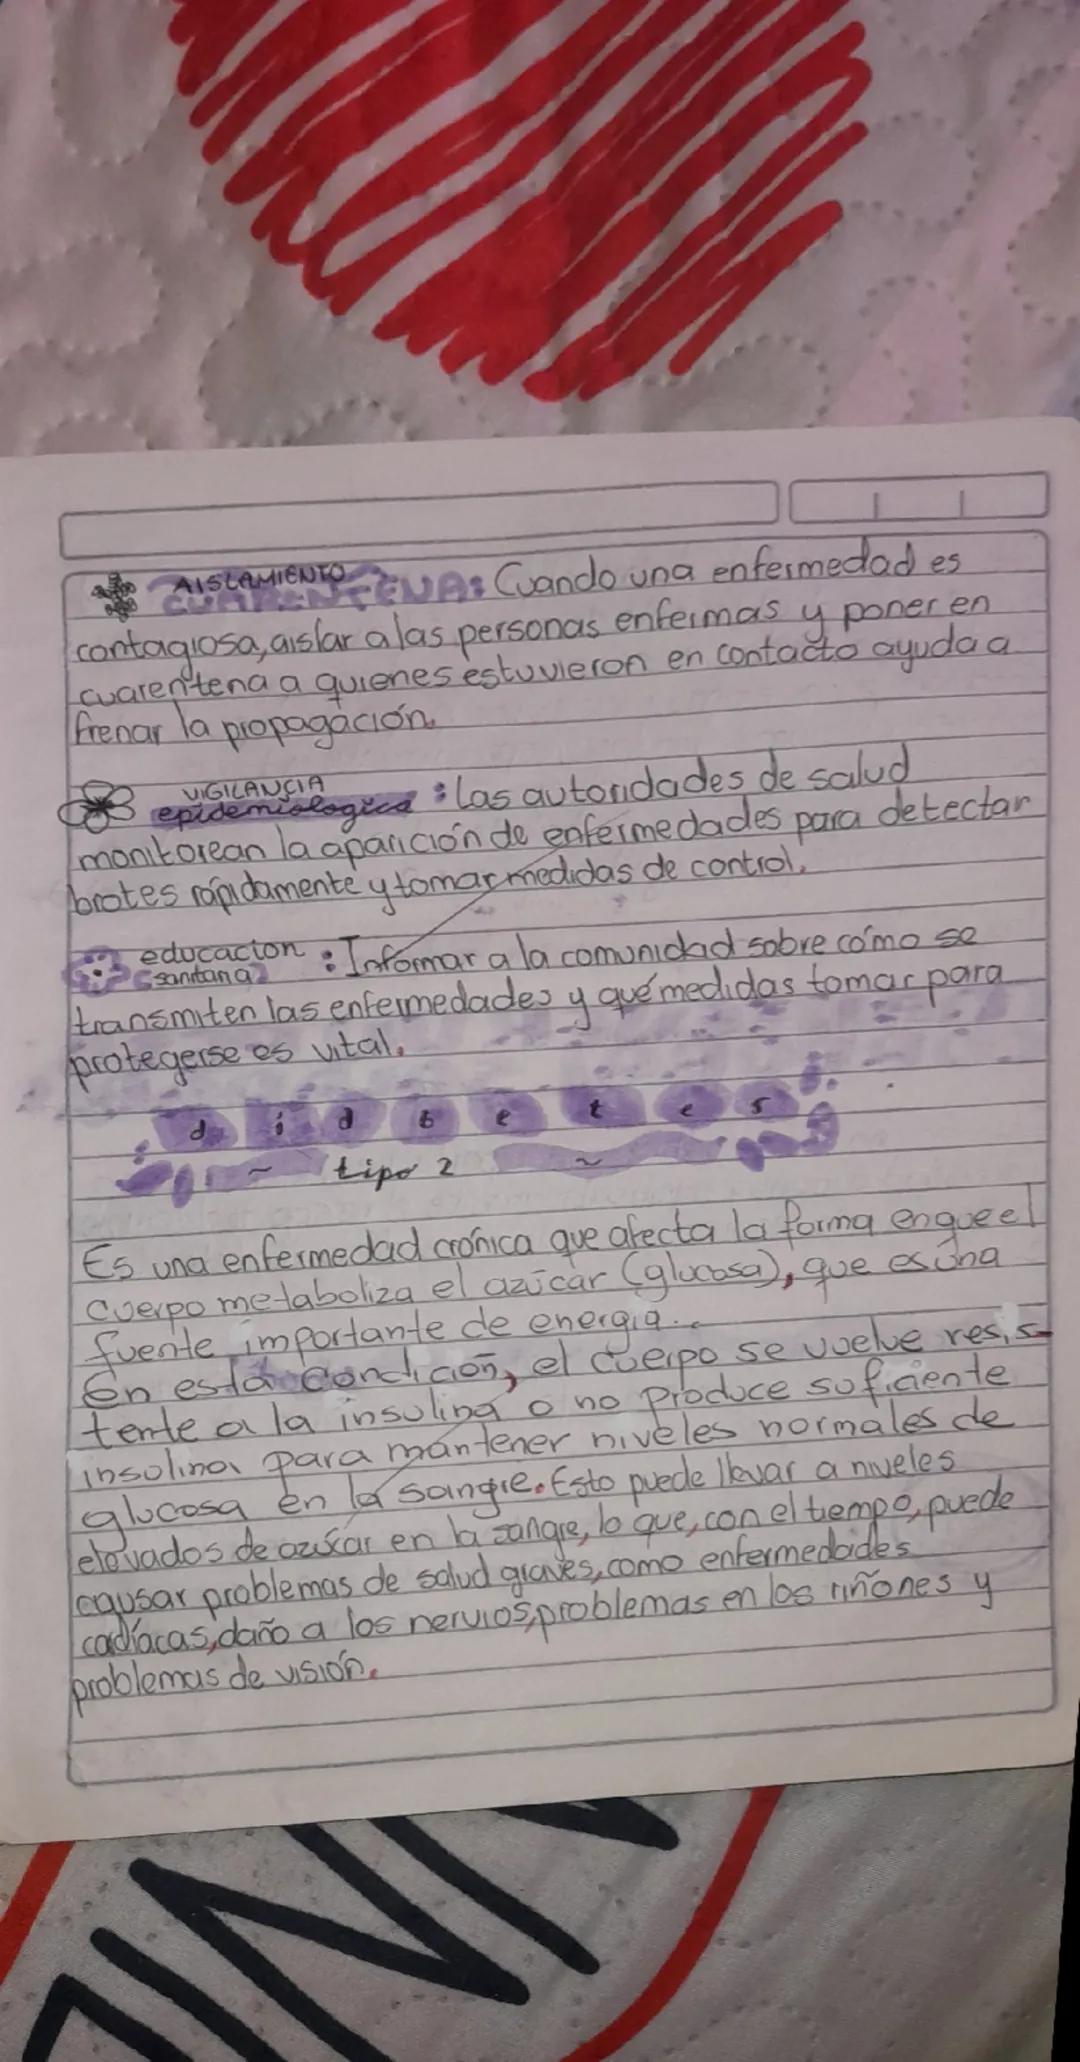 AISLAMIENTO
CUARENTENA: Cuando una enfermedad es
contagiosa, aislar a las personas enfermas y poner en
cuarentena a quienes estuvieron en contacto ayuda a
frenar la propagación.
VIGILANCIA
epidemiologica : Las autoridades de salud
monitorean la aparición de enfermedades para detectar
brotes rápidamente y tomar medidas de control.
educacion
sanitaria : Informar a la comunidad sobre cómo se
transmiten las enfermedades y qué medidas tomar para
protegerse es vital.
diabetes
~ tipo 2 ~
Es una enfermedad crónica que afecta la forma en que el
cuerpo metaboliza el azúcar (glucosa), que es una
fuente importante de energia..
En esta condición, el cuerpo se vuelve resis
tente a la insulina o no produce suficiente
insulina para mantener niveles normales de
glucosa en la sangre. Esto puede llevar a niveles
elevados de azúcar en la sangre, lo que, con el tiempo, puede
causar problemas de salud graves, como enfermedades
cardíacas, daño a los nervios, problemas en los riñones y
problemas de visión.